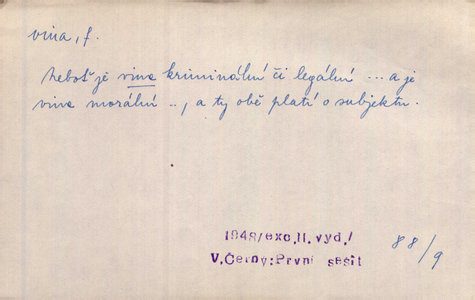 vina, f.
Neboť je vina kriminální či legální ... a je
vina morální .., a ty obě platí o subjektu.
1948/exc.II.vyd./
V.Černý:První sešit
88/9